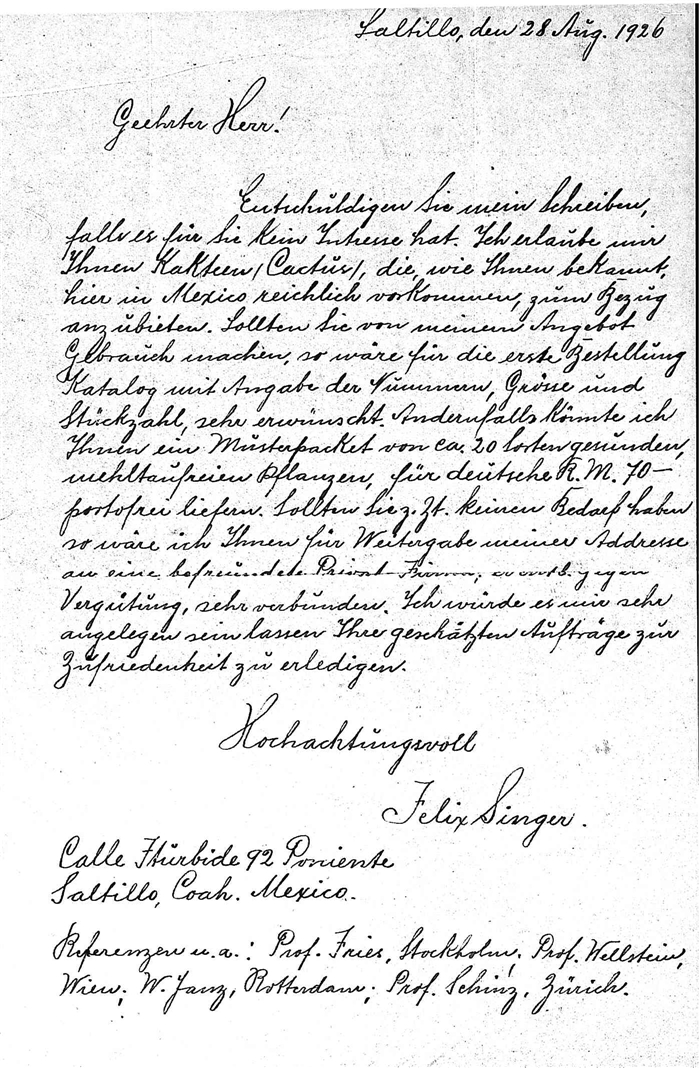 Saltillo, den 28 Aug. 1926
Geehrter Herr!
Entschuldigen Sie mein Schreiben,
falls es für Sie kein Intresse hat. Ich erlaube mir
Ihnen Kakteen /Cactus/, die, wie Ihnen bekannt,
hier in Mexico reichlich vorkommen, zum Bezug
anzubieten. Sollten Sie von meinem Angebot
Gebrauch machen, so wäre für die erste Bestellung
Katalog mit Angabe der Nummern, Grösse und
Stückzahl, sehr erwünscht. Andernfalls könnte ich
Ihnen ein Musterpacket von ca. 20 Sorten gesunden,
mehltaufreien Pflanzen, für deutsche R.M. 70—
portofrei liefern. Sollten Sie z. Zt. keinen Bedarf haben
so wäre ich Ihnen für Weitergabe meiner Addresse
an eine befreundete Privat-Firma, gegen
Vergütung, sehr verbunden. Ich würde es mir sehr
angelegen sein lassen Ihre geschätzten Aufträge zur
Zufriedenheit zu erledigen.
Hochachtungsvoll
Felix Singer.
Calle Iturbide 92 Poniente
Saltillo, Coah. Mexico.
Referenzen u.a.: Prof. Fries, Stockholm; Prof. Wellstein,
Wien; W. Janz, Rotterdam; Prof. Schinz, Zürich.